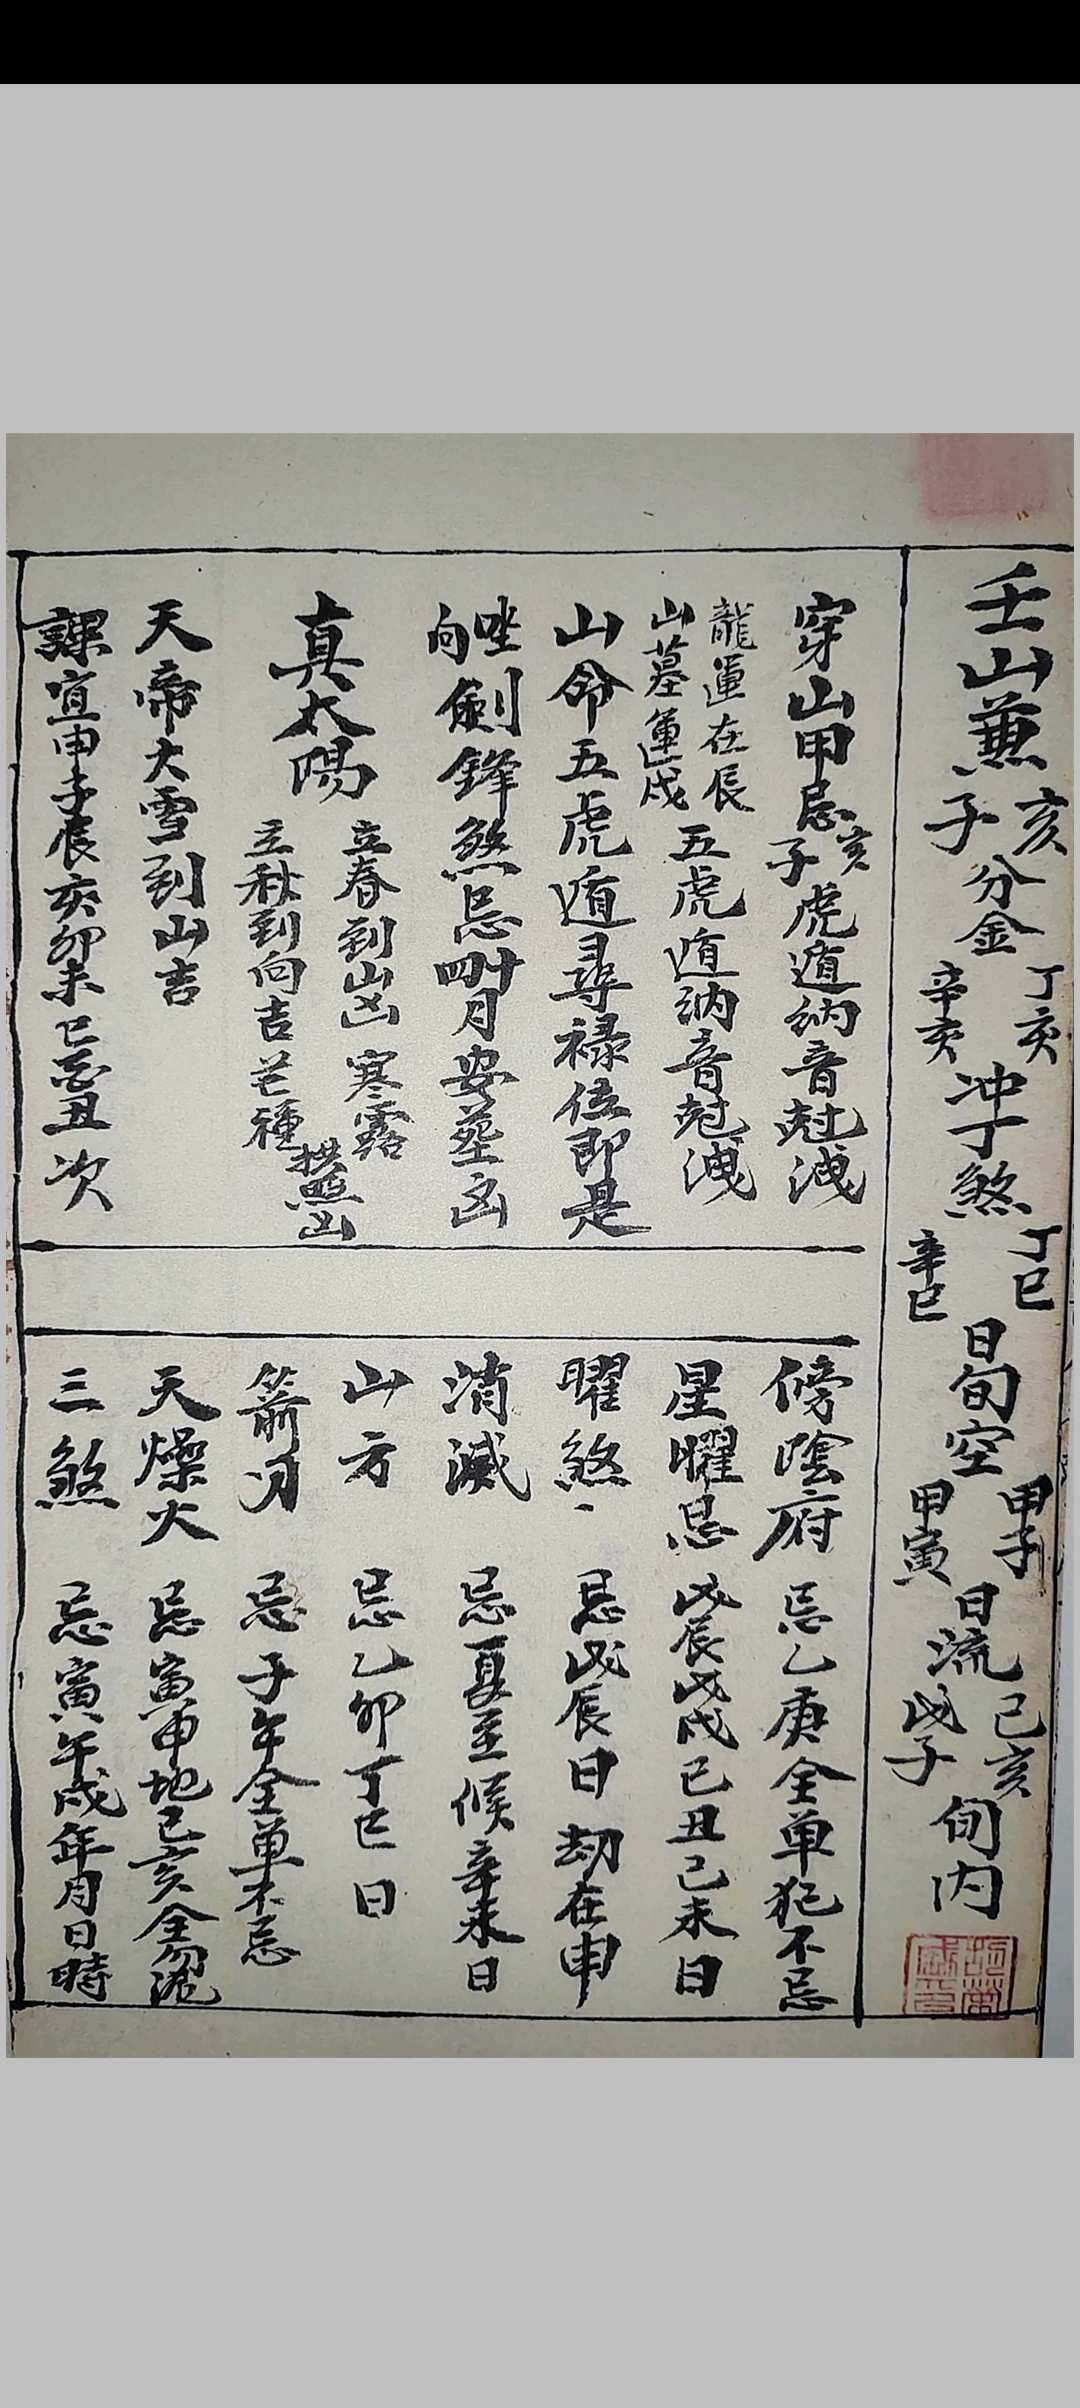 壬山兼亥子分金丁亥辛亥冲丁煞丁巳辛巳日旬空甲子甲寅日流己亥戊子旬内
穿山甲忌亥子虎遁納音尅洩
龍運在辰山墓運戌五虎遁納音尅洩
山命五虎遁尋禄位即是
坐向劍鋒煞忌四十月安葬凶
真太陽立春到山凶寒露立秋到向吉芒種拱照山
天帝大雪到山吉
課宜申子辰亥卯未巳酉丑次
傍陰府忌乙庚全单犯不忌
星曜忌戊辰戊戌己丑己未日
曜煞忌戊辰日劫在申
消滅忌夏至候辛未日
山方忌乙卯丁巳日
箭刃忌子午全单不忌
天燥火忌寅申地巳亥全勿泥
三煞忌寅午戌年月日時